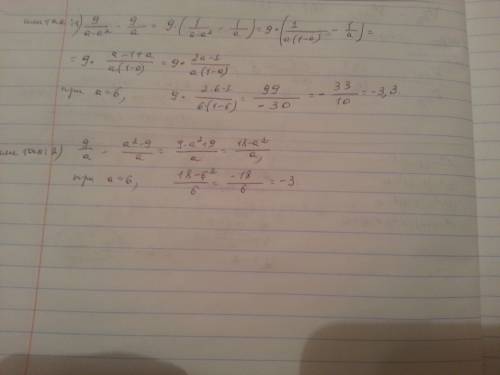 или так: 1) 9/(a-a²) - 9/a = 9·(1/(a-a²) - 1/a) = 9·(1/(a(1-a)) - 1/a) =
= 9· (a-1+a)/(a(1-a)) = 9· (2a-1)/(a(1-a))
при a=6, 9· (2·6-1)/(6(1-6)) = 99/(-30) = - 33/10 = -3,3
или так: 2) 9/a - (a²-9)/a = (9-a²+9)/a = (18-a²)/a,
при a=6, (18-6²)/6 = (-18)/6 = -3